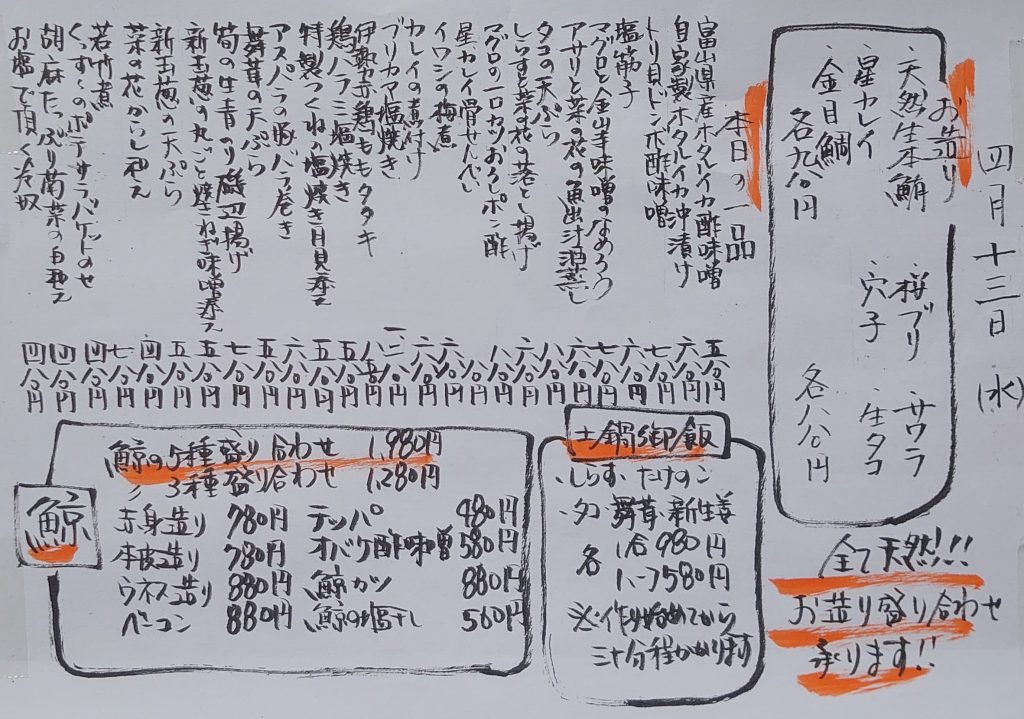 四月十三日(水)
お造り
・天然生本鮪 ・桜ブリ ・サワラ
・星カレイ ・穴子 ・生タコ
・金目鯛
各九八〇円 各八八〇円
全て天然!!!
お造り盛り合わせ
承ります!!
本日の一品
富山県産ホタルイカ酢味噌 五八〇円
自家製ホタルイカ沖漬け 六八〇円
トリ貝トンボ酢味噌 七八〇円
塩筋子 六八〇円
マグロと金山寺味噌のなめろう 七八〇円
アサリと菜の花の魚出汁酒蒸し 六八〇円
タコの天ぷら 八八〇円
しらすと菜の花の落とし揚げ 六八〇円
マグロの一口カツおろしポン酢 八八〇円
星カレイ骨せんべい
イワシの梅煮 六八〇円
カレイの煮付け 六八〇円
ブリカマ塩焼き
伊勢赤鶏ももタタキ
鶏ハラミ塩焼き 五八〇円
特製つくねの塩焼き月見添え 五八〇円
アスパラの豚バラ巻き 六八〇円
舞茸の天ぷら 五八〇円
筍の生青のり磯辺揚げ 七八〇円
新玉葱の丸ごと焼きねぎ味噌添え 五八〇円
新玉葱の天ぷら 五八〇円
菜の花からし和え 四八〇円
若竹煮 七八〇円
くんず〜のポテサラバゲットのせ 四八〇円
胡麻たっぷり南菜の白和え 四八〇円
お塩で頂く冷奴 四八〇円
土鍋御飯
・しらす・たけのこ
・タコ・舞茸・新生姜
各 1合980円
ハーフ580円
※作り始めてから
三十分程かかります
鯨
鯨の5種盛り合わせ 1,980円
〃 3種盛り合わせ 1,280円
赤身造り 780円 テッパ 480円
本皮造り 780円 オバケ酢味噌 580円
ウネス造り 880円 鯨カツ 880円
ベーコン 880円 鯨の塩干し 560円